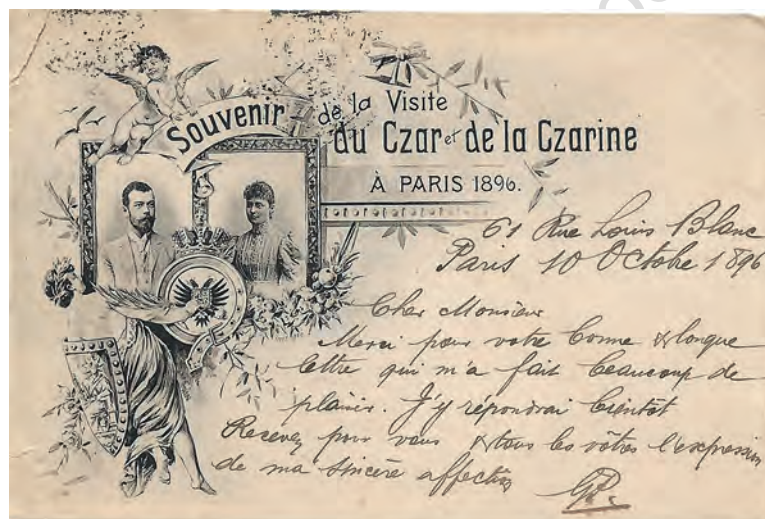 Souvenir de la Visite
du Czar et de la Czarine
À PARIS 1896.
61 Rue Louis Blanc
Paris 10 Octobre 1896
Cher Monsieur
Merci pour votre bonne & longue
lettre qui m'a fait beaucoup de
plaisir. J'y répondrai bientôt
Recevez pour vous & tous les vôtres l'expression
de ma sincère affection